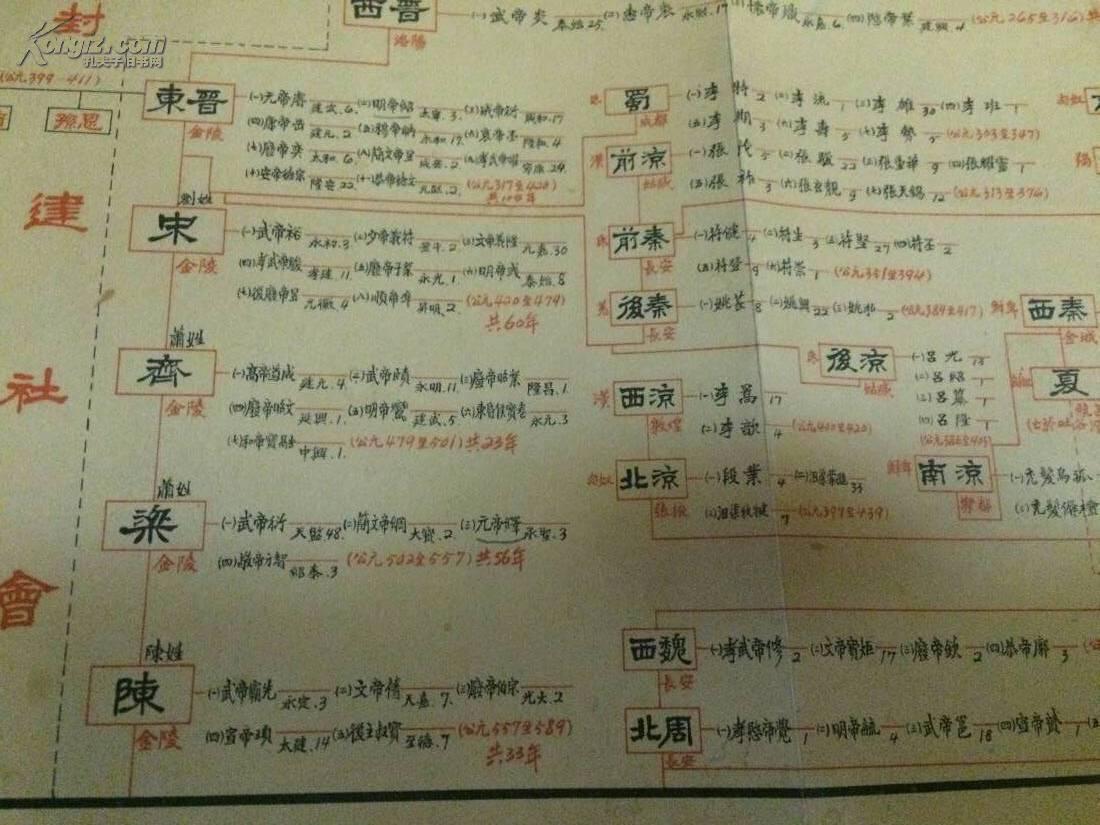 Kongfz.com
孔夫子旧书网
封
建
社
會
西晋
洛陽
(一)武帝炎 泰始25
(公元265至316)
(公元399-411)
孫恩
東晋
金陵
(一)元帝睿 建武.6.
(二)明帝紹 太寧.3.
(三)成帝衍 咸和.17
(四)康帝岳 建元.2
(五)穆帝聃 永和.17.
(六)哀帝丕 隆和.4
(七)廢帝奕 太和.6.
(八)簡文帝昱 咸安.2.
(九)孝武帝曜
(十)安帝德宗 隆安.22.
(十一)恭帝德文 元熙.2.
(公元317至420)
劉姓
宋
金陵
(一)武帝裕 永初.3
(二)少帝義符 景平.2
(三)文帝義隆 元嘉.30
(四)孝武帝駿 孝建.11.
(五)廢帝子業 永光.1.
(六)明帝彧 泰始.8
(七)後廢帝昱 元徽.4
(八)順帝準 昇明.2.
(公元420至479)
共60年
蕭姓
齊
金陵
(一)高帝道成 建元.4.
(二)武帝賾 永明.11.
(三)廢帝昭業 隆昌.1.
(四)廢帝昭文 延興.1.
(五)明帝鸞 建武.5.
(六)東昏侯寶卷 永元.3
(七)和帝寶融 中興.1.
(公元479至501)共23年
蕭姓
梁
金陵
(一)武帝衍 天監48.
(二)簡文帝綱 大寶.2.
(三)元帝繹 承聖.3
(四)敬帝方智 紹泰.3
(公元502至557)共56年
陳姓
陳
金陵
(一)武帝霸先 永定.3
(二)文帝蒨 天嘉.7.
(三)廢帝伯宗 光大.2
(四)宣帝頊 太建.14
(五)後主叔寶 至德.7
(公元557至589)
共33年
蜀
成都
(一)李特2 (二)李流1 (三)李雄30 (四)李班1
(五)李期3 (六)李壽5 (七)李勢5 (公元303至347)
漢
前涼
姑臧
(一)張茂5 (二)張駿22 (三)張重華9 (四)張耀靈1
(五)張祚3 (六)張玄靚9 (七)張天錫12 (公元313至376)
氐
前秦
長安
(一)苻健4 (二)苻生3 (三)苻堅27 (四)苻丕2
(五)苻登9 (六)苻崇1 (公元351至394)
羌
後秦
長安
(一)姚萇8 (二)姚興22 (三)姚泓2 (公元384至417)
鮮卑
西秦
金城
氐
後涼
姑臧
(一)呂光13
(二)呂紹1
(三)呂纂1
(四)呂隆1
夏
漢
西涼
敦煌
(一)李暠17
(二)李歆4 (公元400至420)
匈奴
北涼
張掖
(一)段業4 (二)沮渠蒙遜33
(三)沮渠牧犍7 (公元397至439)
鮮卑
南涼
(一)禿髮烏孤
西魏
長安
(一)孝武帝修2 (二)文帝寶炬17 (三)廢帝欽2 (四)恭帝廓3
北周
長安
(一)孝愍帝覺1 (二)明帝毓4 (三)武帝邕18 (四)宣帝贇1